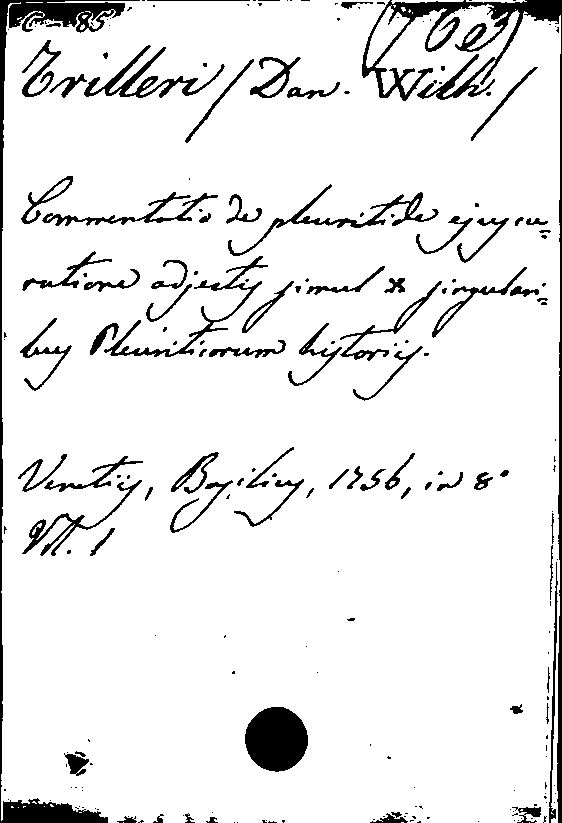 C-85
(76e)
Trilleri / Dan. Wilh. /
Commentatio de pleuritide ejuscu=
ratione adjectis simul & singulari=
bus Pleuriticorum historiis.
Venetiis, Basilius, 1756, in 8°
Vol. 1